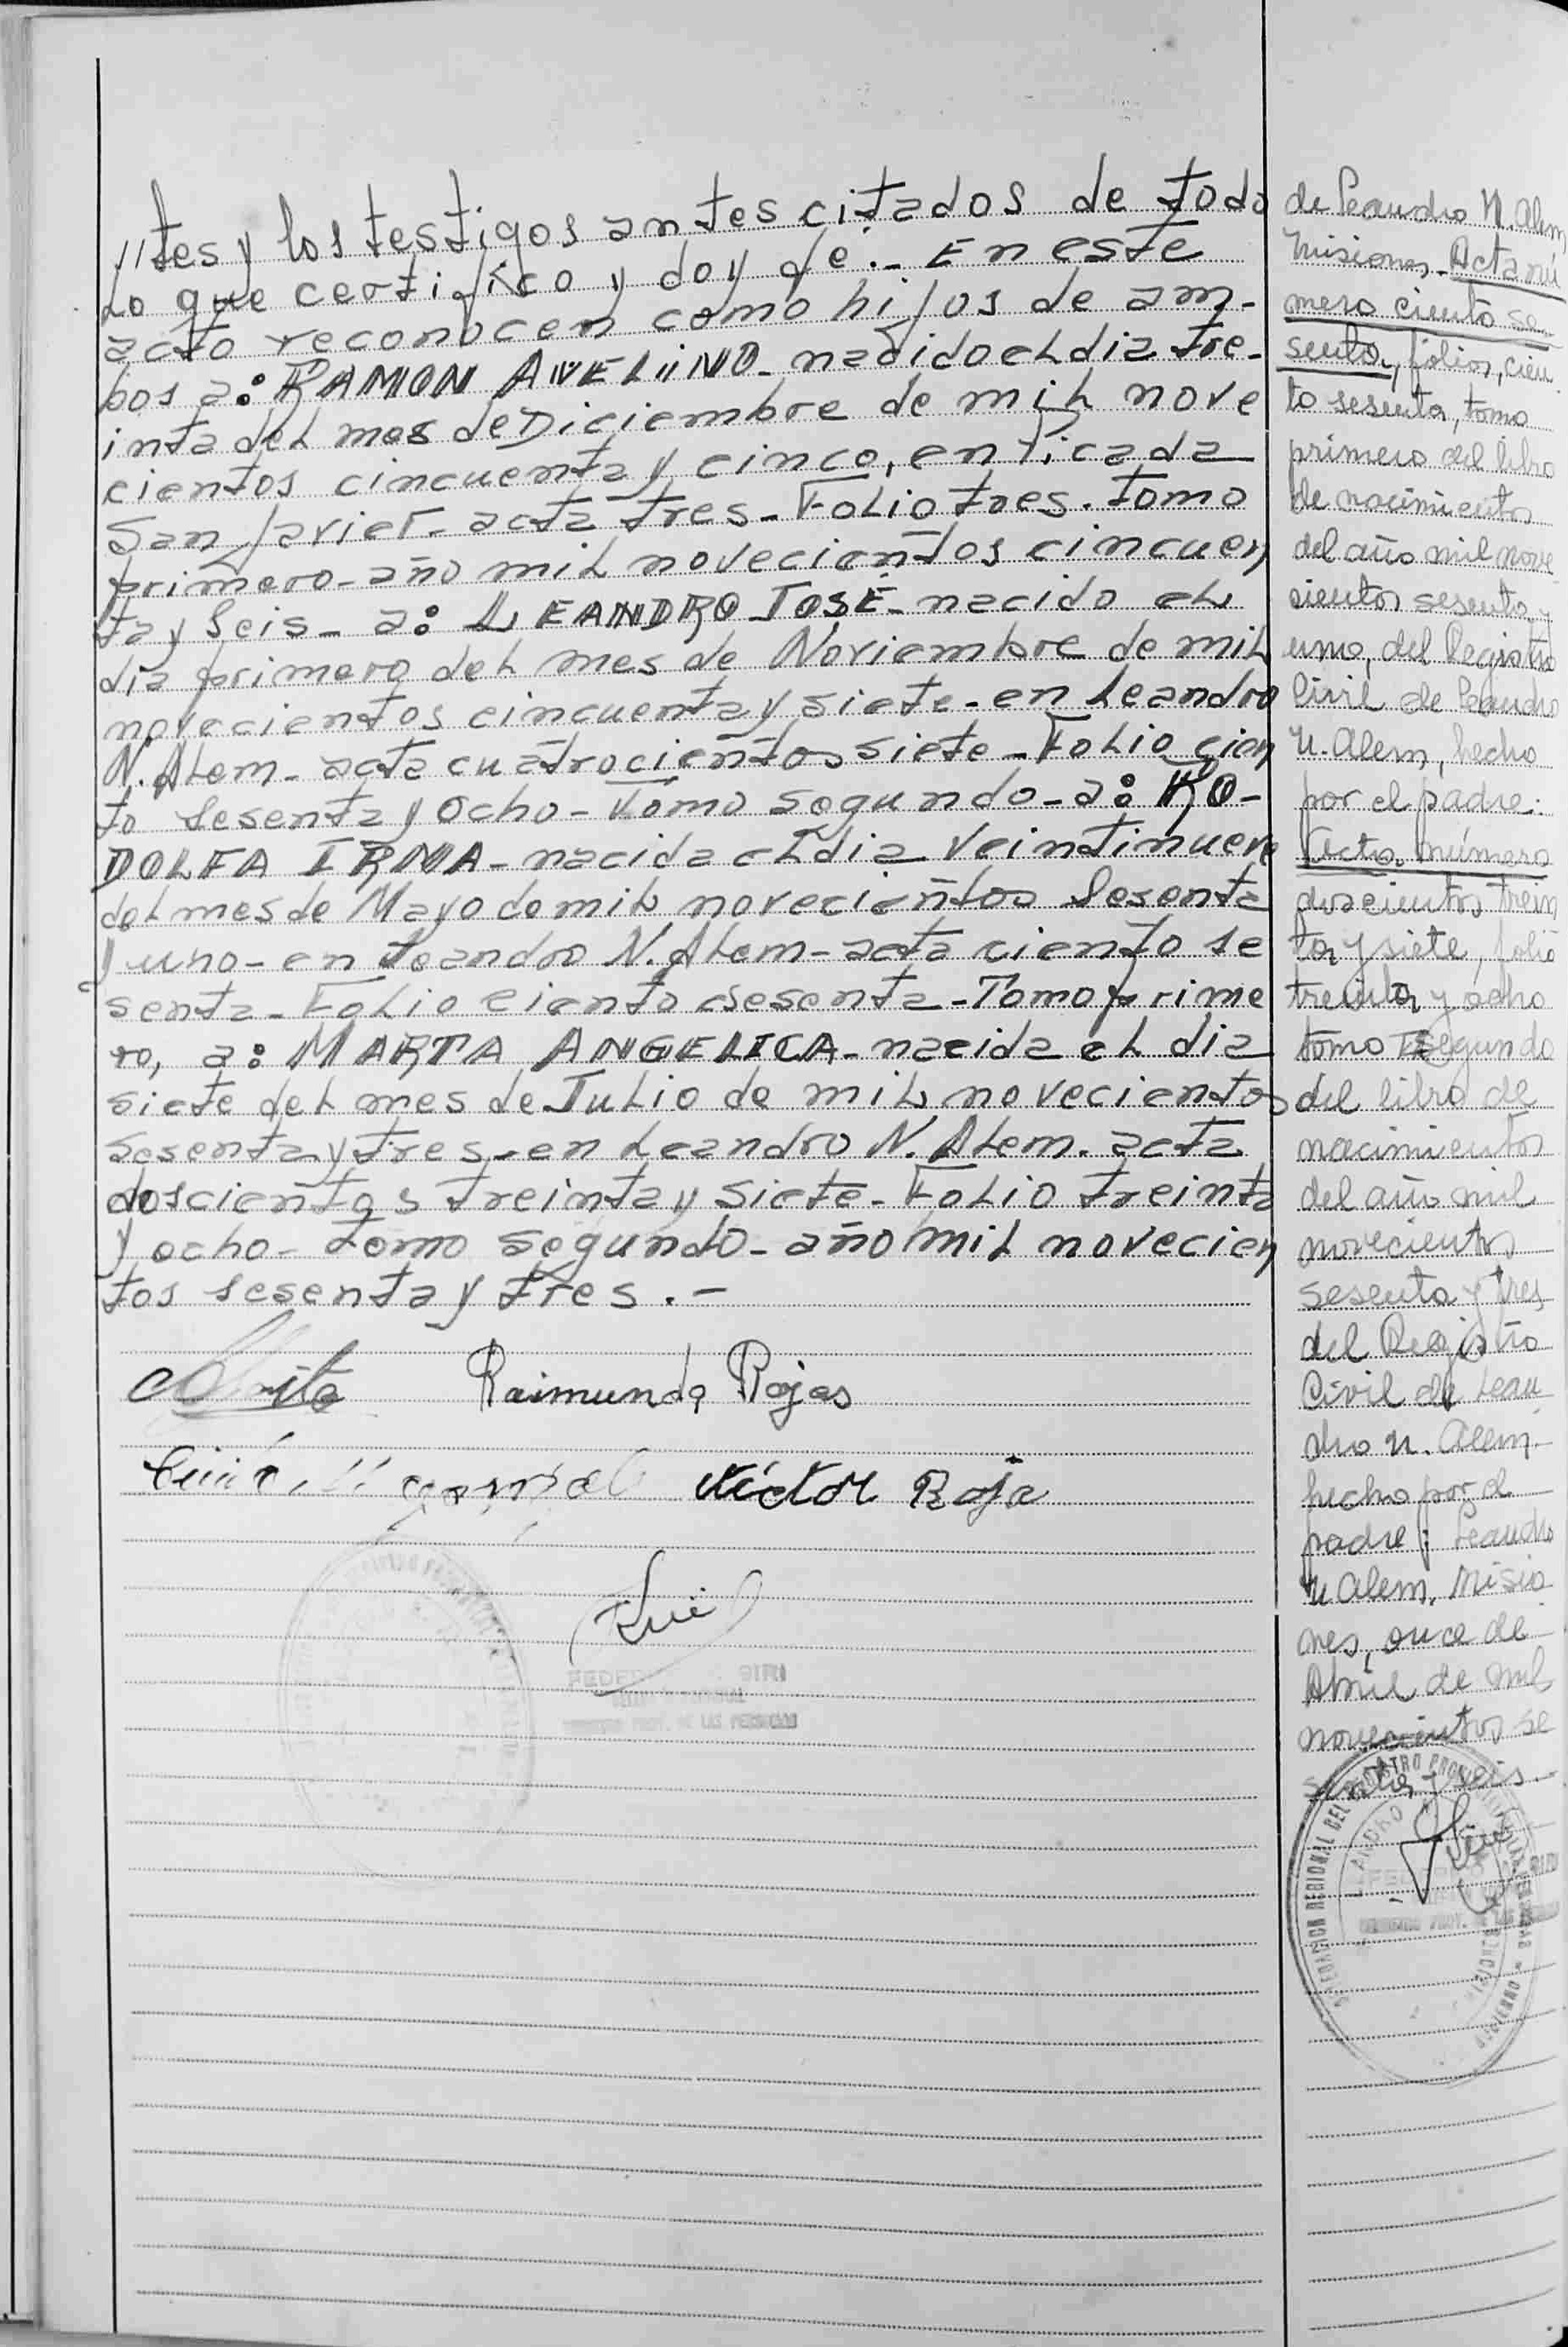 //tes y los testigos antes citados de todo
Lo que certifico y doy fe.- En este
acto reconocen como hijos de am-
bos a: RAMON AVELINO- nacido el dia tre-
inta del mes de Diciembre de mil nove
cientos cincuenta y cinco, en Picada
San Javier- acta tres- Folio tres. tomo
primero- año mil novecientos cincuen
ta y seis- a: LEANDRO JOSÉ- nacido el
dia primero del mes de Noviembre de mil
novecientos cincuenta y siete- en Leandro
N. Alem- acta cuatrocientos siete- Folio cien
to sesenta y ocho- tomo segundo- a: RO-
DOLFA IRMA- nacida el dia veintinueve
del mes de Mayo de mil novecientos sesenta
y uno- en Leandro N. Alem- acta ciento se
senta- Folio ciento sesenta- Tomo prime
ro, a: MARTA ANGELICA- nacida el dia
siete del mes de Julio de mil novecientos
sesenta y tres- en Leandro N. Alem. acta
doscientos treinta y siete- Folio treinta
y ocho- tomo segundo- año mil novecien
tos sesenta y tres.-
Raimunda Rojas
Victor Roja
FEDER
PROV. DE LAS PERSONAS
de Leandro N. Alem
Misiones- Acta nú
mero ciento se
senta, folios, cien
to sesenta, tomo
primero del libro
de nacimientos
del año mil nove
cientos sesenta y
uno, del Registro
Civil de Leandro
N. Alem, hecho
por el padre:
Acta número
doscientos trein
ta y siete, folio
treinta y ocho
tomo segundo
del libro de
nacimientos
del año mil
novecientos
sesenta y tres
del Registro
Civil de Lean
dro N. Alem.
hecho por el
padre: Leandro
N Alem. Misio
nes, once de
Abril de mil
novecientos se
senta y seis.-
DELEGACION REGIONAL DEL REGISTRO PROVINCIAL DE LAS PERSONAS
LEANDRO N.
MISIONES
PROV. DE LAS